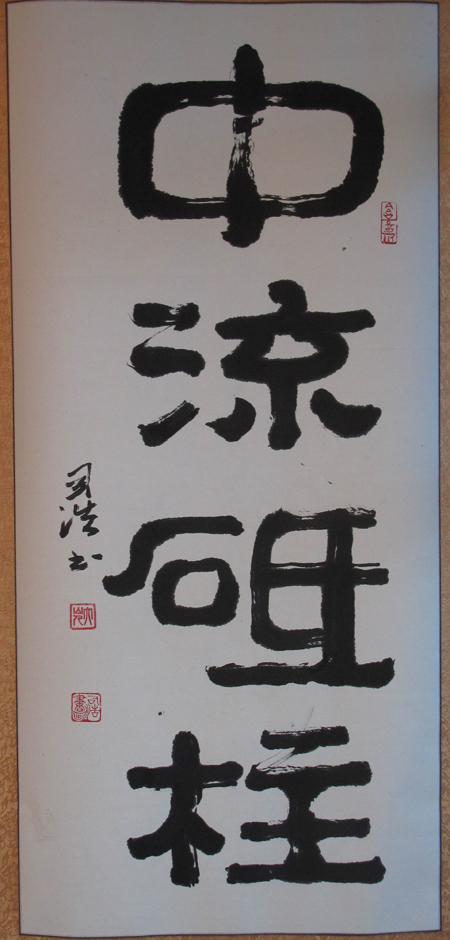 中流砥柱
司浩书